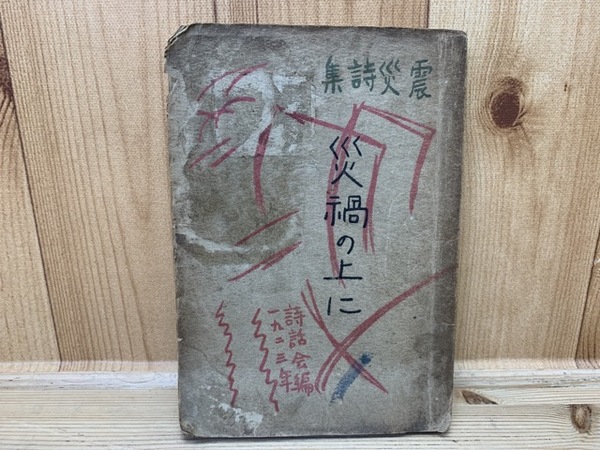 震災詩集
災禍の上に
詩話会編
一九二三年